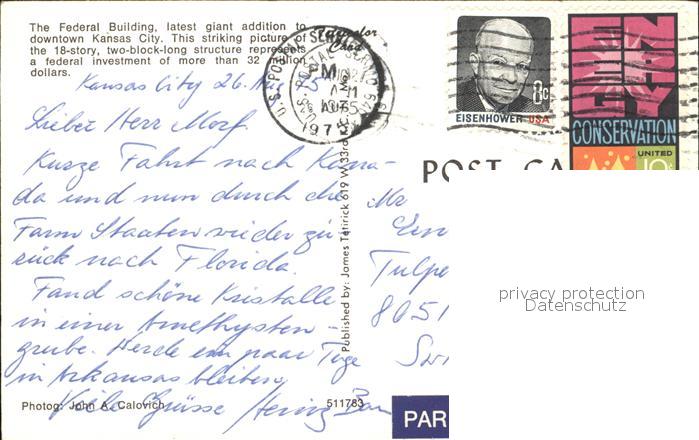 The Federal Building, latest giant addition to
downtown Kansas City. This striking picture of
the 18-story, two-block-long structure represents
a federal investment of more than 32 million
dollars.
Kansas City 26.
Lieber Herr Morf.
Kurze Fahrt nach Kana-
da und nun durch die
Farm Staaten wieder zu-
rück nach Florida.
Fand schöne Kristalle
in einer Amethysten-
grube. Werde ein paar Tage
in Arkansas bleiben,
Viele Grüsse Heinz
Photo: John A. Calovich
511783
Published by: James Tetirick 619 W. 33rd
U.S. POSTAL
PM
EISENHOWER USA
8c
ENERGY
CONSERVATION
UNITED
10c
POST CA
Mr
Tulpe
8051
PAR
privacy protection
Datenschutz